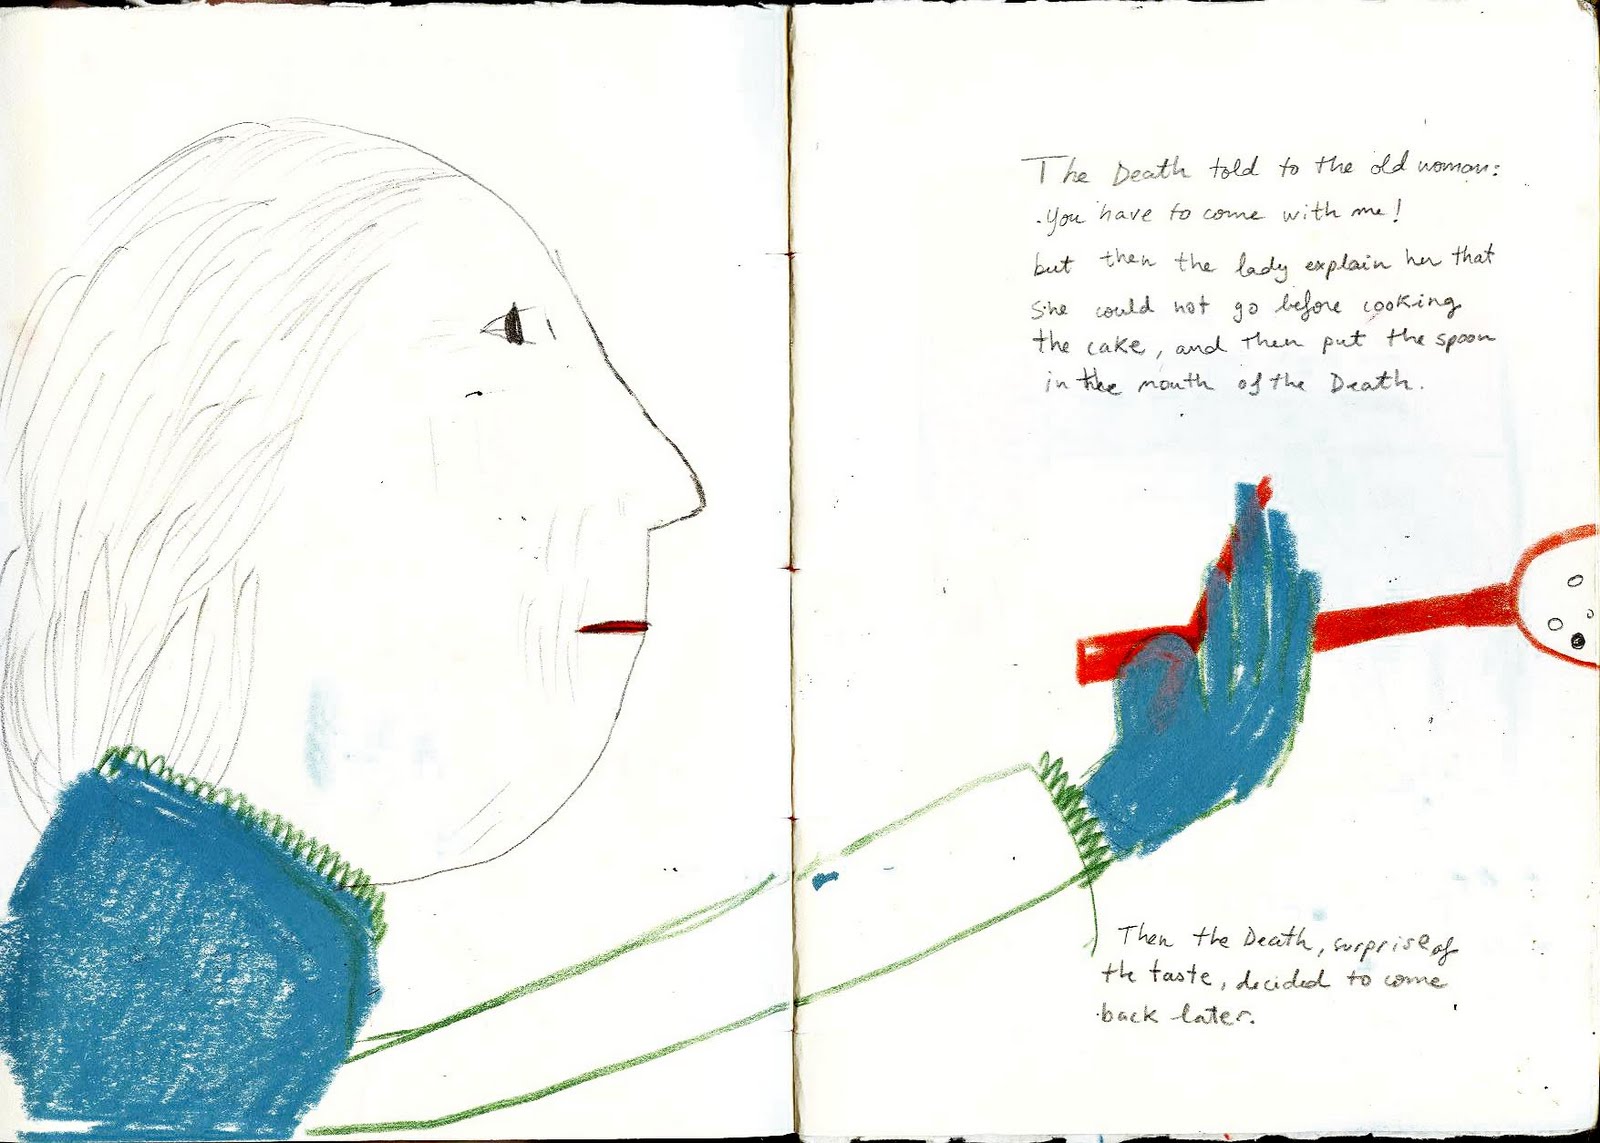 The Death told to the old woman:
. You have to come with me!
but then the lady explain her that
she could not go before cooking
the cake, and then put the spoon
in the mouth of the Death.
Then the Death, surprise of
the taste, decided to come
back later.